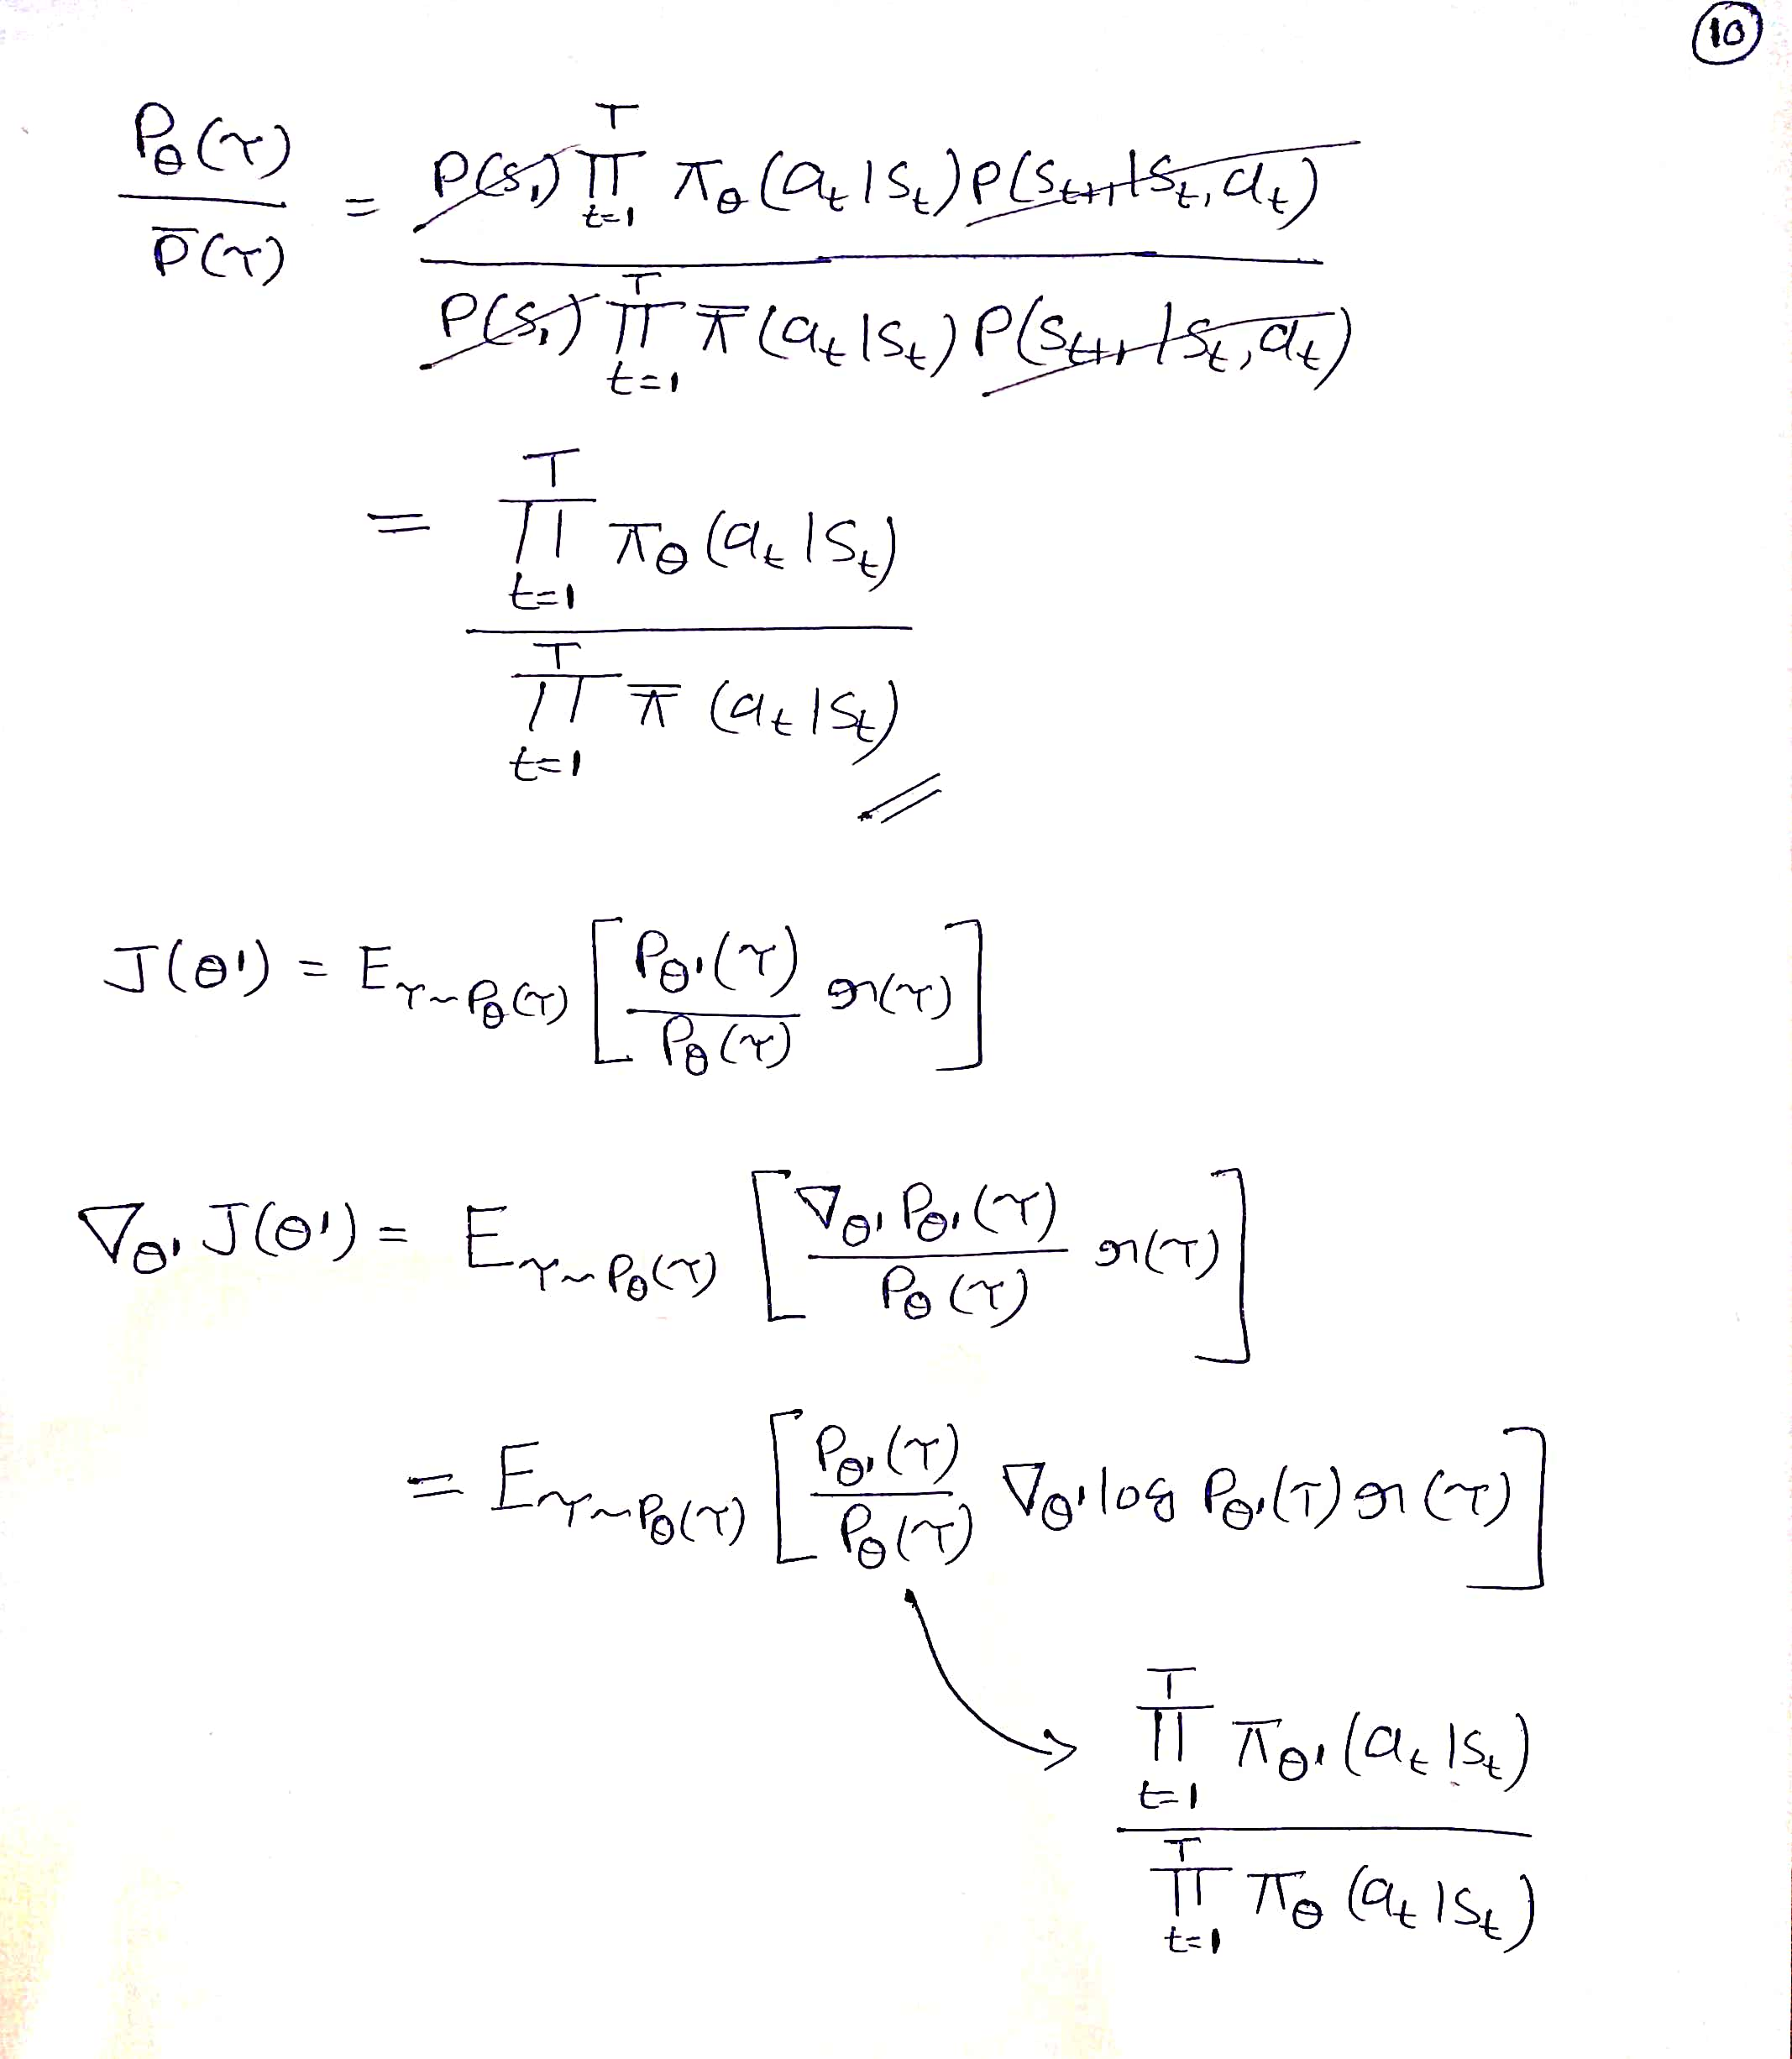 10
P_θ(τ) / P̄(τ) = P(s₁) ∏_{t=1}^{T} π_θ(a_t|s_t) P(s_{t+1}|s_t, a_t) / P(s₁) ∏_{t=1}^{T} π̄(a_t|s_t) P(s_{t+1}|s_t, a_t)
= ∏_{t=1}^{T} π_θ(a_t|s_t) / ∏_{t=1}^{T} π̄(a_t|s_t) //
J(θ') = E_{τ~P_θ(τ)} [ P_θ'(τ) / P_θ(τ) r(τ) ]
∇_θ' J(θ') = E_{τ~P_θ(τ)} [ ∇_θ' P_θ'(τ) / P_θ(τ) r(τ) ]
= E_{τ~P_θ(τ)} [ P_θ'(τ) / P_θ(τ) ∇_θ' log P_θ'(τ) r(τ) ]
→ ∏_{t=1}^{T} π_θ'(a_t|s_t) / ∏_{t=1}^{T} π_θ(a_t|s_t)